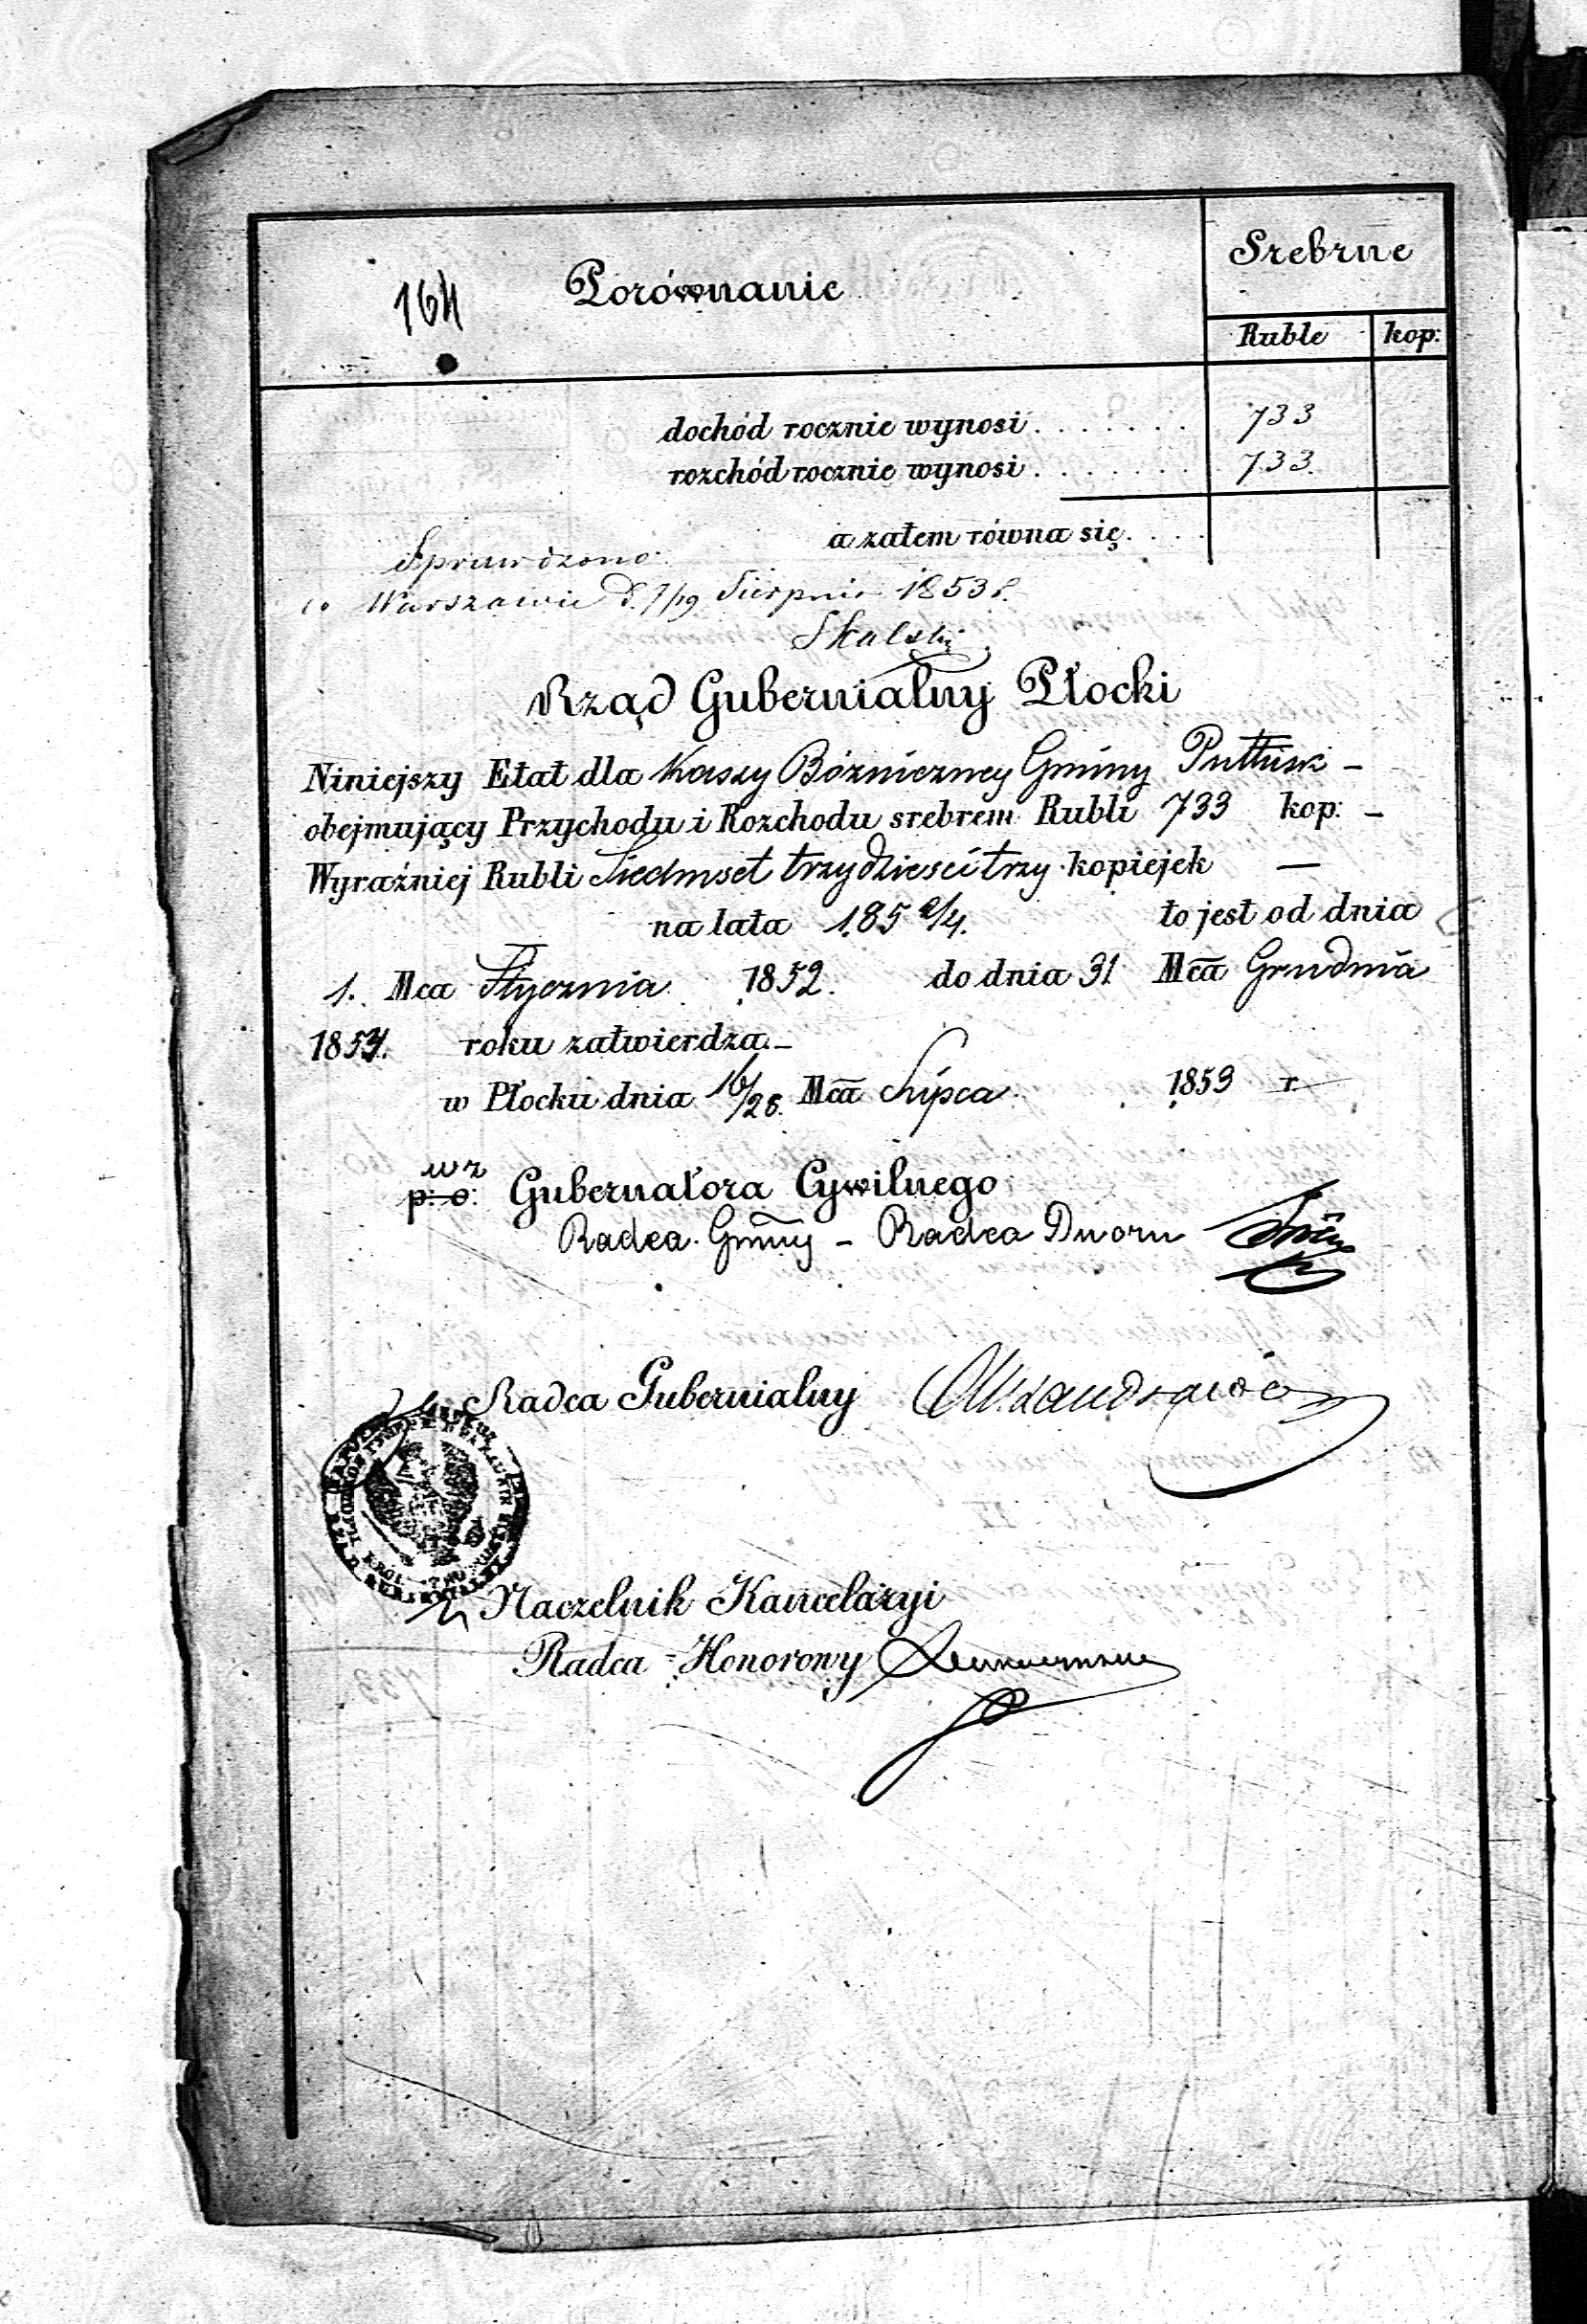 164
Porównanie
Srebrne
Ruble kop:
dochód rocznie wynosi . . . . . . . 733
rozchód rocznie wynosi . . . . . . . 733.
a zatem równa się . . . .
Sprawdzono:
w Warszawie d. 7/19 Sierpnia 1853 r.
Skalski
Rząd Gubernialny Płocki
Niniejszy Etat dla Kassy Bózniczney Gminy Pułtusk –
obejmujący Przychodu i Rozchodu srebrem Rubli 733 kop: –
Wyraźniej Rubli Siedmset trzydzieści trzy kopiejek —
na lata 185 2/4. to jest od dnia
1. Mca Stycznia 1852. do dnia 31 Mca Grudnia
1854. roku zatwierdza.–
w Płocku dnia 16/28. Mca Lipca 1853 r
wz
p: o: Gubernatora Cywilnego
Radca Gminy – Radca Dworu
Radca Gubernialny
Naczelnik Kancelaryi
Radca Honorowy